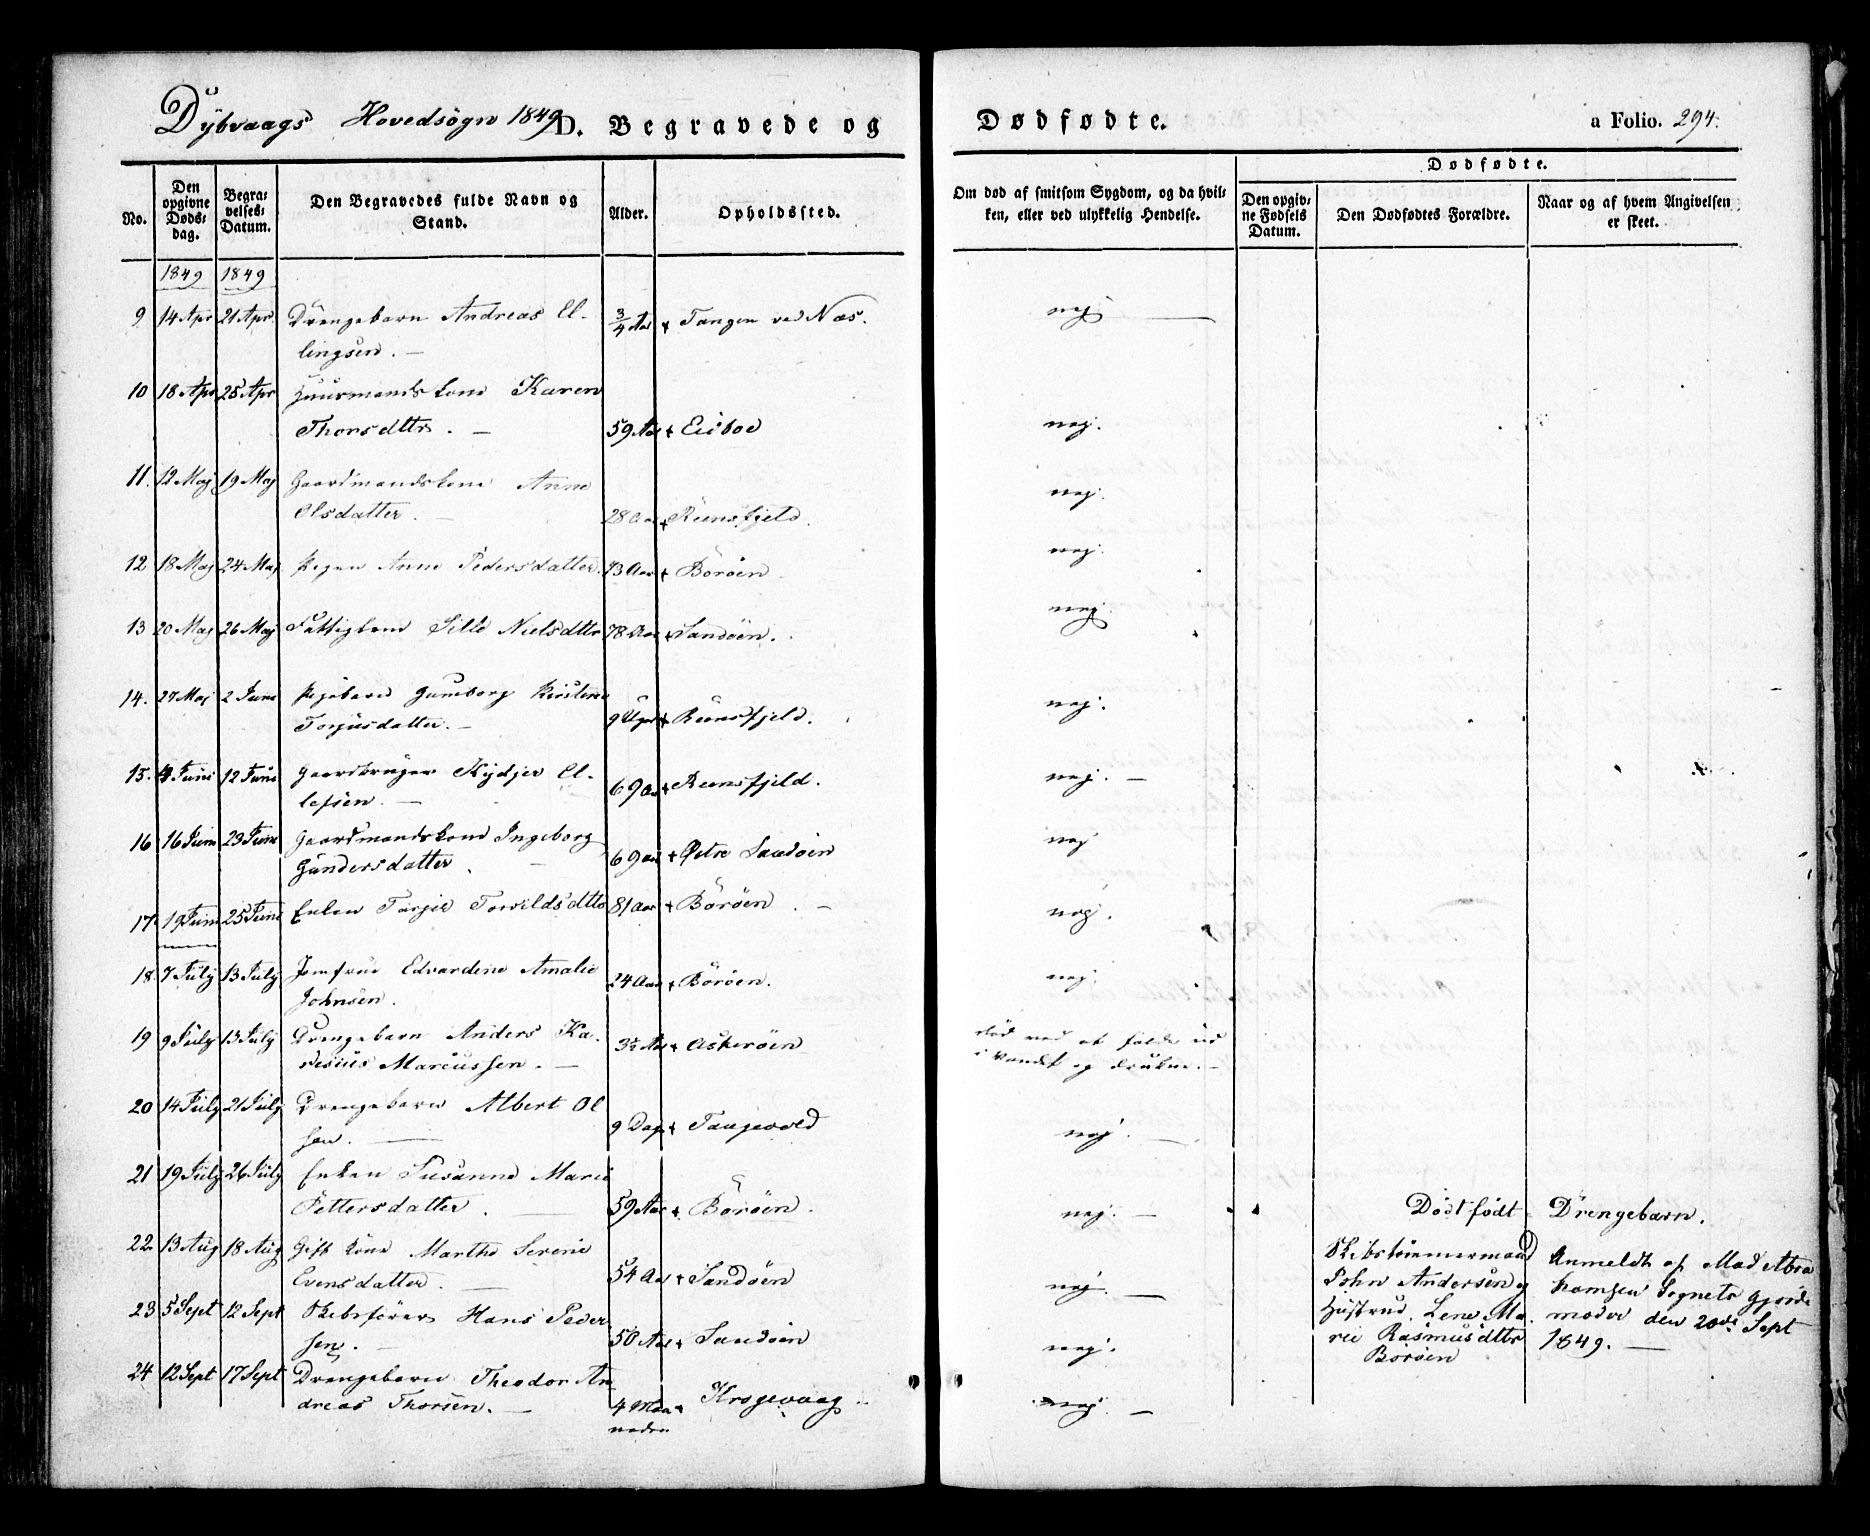 Dybvaags Hovedsogn 1849 D. Begravede og Dødfødte. a Folio. 294.
No. Den opgivne Dødsdag. Begravelses-Datum. Den Begravedes fulde Navn og Stand. Alder. Opholdssted. Om død af smitsom Sygdom, og da hvilken, eller ved ulykkelig Hendelse. Dødfødte.
Den opgivne Fødsels Datum. Den Dødfødtes Forældre. Naar og af hvem Angivelsen er skeet.
1849 1849
9 14 Apr 21 Apr Drengebarn Andreas El- 3/4 Aar + Tangen ved Næs. nej
lingsen. —
10 18 Apr 25 Apr Huusmandskone Karen
Thorsdttr. — 59 Aar + Eisboe nej.
11. 12 Maj 19 Maj Gaardmandskone Anne
Olsdatter. — 28 Aar + Reensfjeld. nej.
12 18 Maj 24 Maj Pigen Anne Pedersdatter. 73 Aar + Borøen. nej.
13 20 Maj 26 Maj Fattiglem Sille Nielsdttr 78 Aar + Sandøen. nej.
14. 27 Maj 2 Juni Pigebarn Gunborg Kirstine
Torjusdatter. — 9 Uger + Reensfjeld. nej.
15. 4 Juni 12 Juni Gaardbruger Kydjer El-
lefsen. — 69 Aar + Reensfjeld. nej. —
16 16 Juni 23 Juni Gaardmandskone Ingeborg
Gundersdatter. — 69 Aar + Østre Sandøen nej
17. 19 Juni 25 Juni Enken Torgie Towildsdttr 81 Aar + Borøen. — nej.
18 7 July 13 July Jomfrue Edvardine Amalie
Johnsen. 24 Aar + Borøen. nej.
19 9 July 13 July Drengebarn Anders Ka-
risius Marcussen. — 3½ Aar + Askerøen død ved at falde ud
i Vandet og drukne. —
20 14 July 21 July Drengebarn Albert Ol
sen. — 9 Dage + Tangevold nej. —
21 19 July 26 July Enken Susanne Marie
Pettersdatter. — 59 Aar + Borøen. nej. —
22 13 Aug 18 Aug Gift Kone Marthe Serine
Evensdatter. — 54 Aar + Sandøen nej. —
23 5 Sept 12 Sept Skibsfører Hans Peder
sen. — 50 Aar + Sandøen nej.
24 12 Sept 17 Sept Drengebarn Theodor An
dreas Thorsen. — 4 Maa- Krogevaag nej. —
neder
Dødtfødt Drengebarn.
Skibstømmermand Anmeldt af Mad Abra
John Andersen og hamsen Sognets Gjorde
Hustrue Lene Ma- moder den 20de Sept
rie Rasmusdttr 1849. —
Borøen